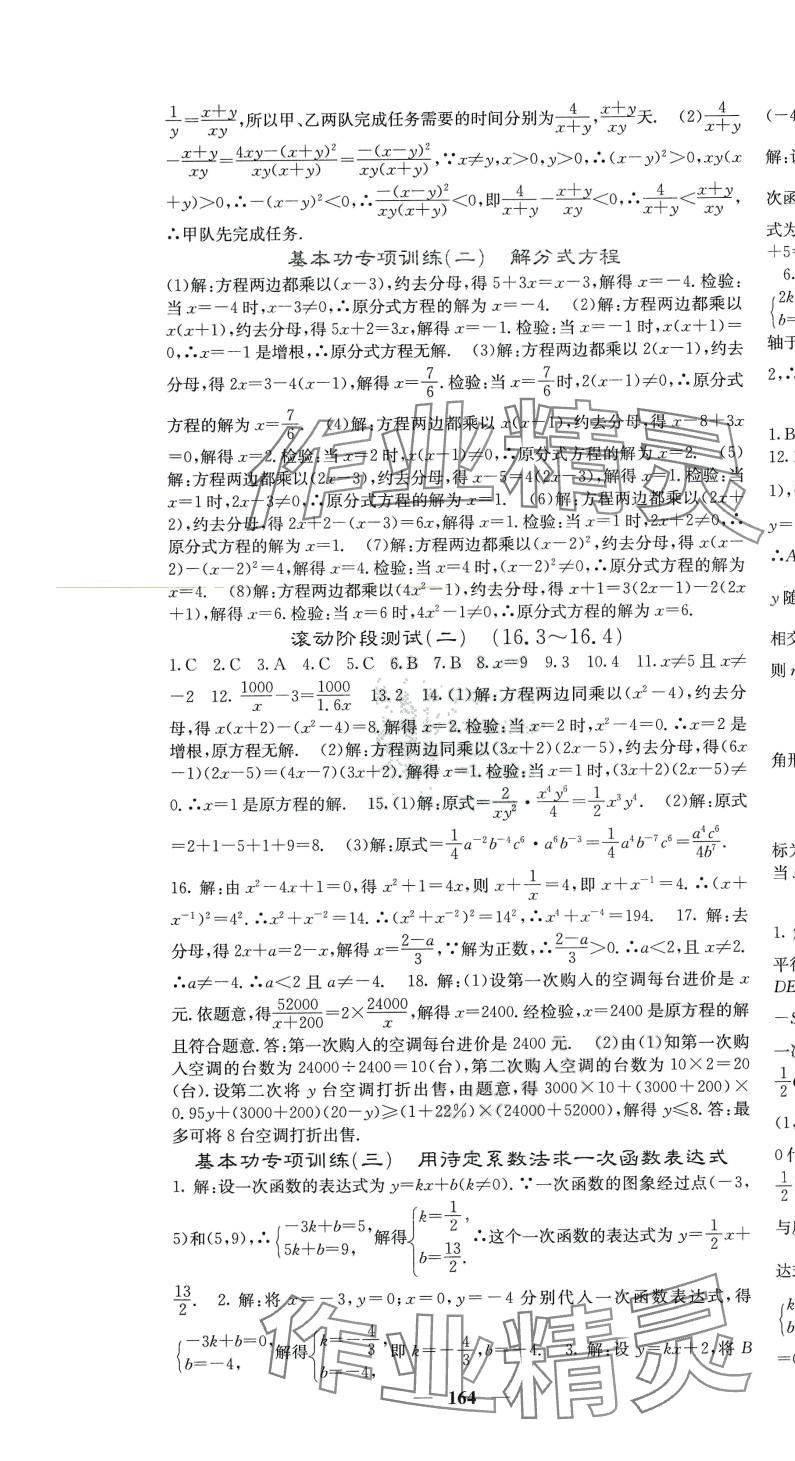 1/y=(x+y)/xy,所以甲、乙两队完成任务需要的时间分别为4/(x+y),(x+y)/xy天. (2)4/(x+y)
-(x+y)/xy=(4xy-(x+y)²)/(xy(x+y))=(-(x-y)²)/(xy(x+y)),∵x≠y,x>0,y>0,∴(x-y)²>0,xy(x
+y)>0,∴-(x-y)²<0,∴(-(x-y)²)/(xy(x+y))<0,即4/(x+y)-(x+y)/xy<0,∴4/(x+y)<(x+y)/xy,
∴甲队先完成任务.
基本功专项训练(二) 解分式方程
(1)解:方程两边都乘以(x-3),约去分母,得5+3x=x-3,解得x=-4.检验:
当x=-4时,x-3≠0,∴原分式方程的解为x=-4. (2)解:方程两边都乘以
x(x+1),约去分母,得5x+2=3x,解得x=-1.检验:当x=-1时,x(x+1)=
0,∴x=-1是增根,∴原分式方程无解. (3)解:方程两边都乘以2(x-1),约去
分母,得2x=3-4(x-1),解得x=7/6.检验:当x=7/6时,2(x-1)≠0,∴原分式
方程的解为x=7/6. (4)解:方程两边都乘以x(x-1),约去分母,得x-8+3x
=0,解得x=2.检验:当x=2时,x(x-1)≠0,∴原分式方程的解为x=2. (5)
解:方程两边都乘以(2x-3),约去分母,得x-5=4(2x-3),解得x=1.检验:当
x=1时,2x-3≠0,∴原分式方程的解为x=1. (6)解:方程两边都乘以(2x+
2),约去分母,得2x+2-(x-3)=6x,解得x=1.检验:当x=1时,2x+2≠0,∴
原分式方程的解为x=1. (7)解:方程两边都乘以(x-2)²,约去分母,得x(x-
2)-(x-2)²=4,解得x=4.检验:当x=4时,(x-2)²≠0,∴原分式方程的解为
x=4. (8)解:方程两边都乘以(4x²-1),约去分母,得x+1=3(2x-1)-2(2x
+1),解得x=6.检验:当x=6时,4x²-1≠0,∴原分式方程的解为x=6.
滚动阶段测试(二) (16.3~16.4)
1.C 2.C 3.A 4.C 5.C 6.B 7.B 8.x=9 9.3 10.4 11.x≠5且x≠
-2 12.1000/x-3=1000/1.6x 13.2 14.(1)解:方程两边同乘以(x²-4),约去分
母,得x(x+2)-(x²-4)=8.解得x=2.检验:当x=2时,x²-4=0.∴x=2是
增根,原方程无解. (2)解:方程两边同乘以(3x+2)(2x-5),约去分母,得(6x
-1)(2x-5)=(4x-7)(3x+2).解得x=1.检验:当x=1时,(3x+2)(2x-5)≠
0.∴x=1是原方程的解. 15.(1)解:原式=2/xy²·x⁴y⁶/4=1/2x³y⁴. (2)解:原式
=2+1-5+1+9=8. (3)解:原式=1/4a⁻²b⁻⁴c⁶·a⁶b⁻³=1/4a⁴b⁻⁷c⁶=a⁴c⁶/4b⁷.
16. 解:由x²-4x+1=0,得x²+1=4x,则x+1/x=4,即x+x⁻¹=4.∴(x+
x⁻¹)²=4².∴x²+x⁻²=14.∴(x²+x⁻²)²=14²,∴x⁴+x⁻⁴=194. 17. 解:去
分母,得2x+a=2-x,解得x=(2-a)/3,∵解为正数,∴(2-a)/3>0.∴a<2,且x≠2.
∴a≠-4.∴a<2且a≠-4. 18. 解:(1)设第一次购入的空调每台进价是x
元.依题意,得52000/(x+200)=2×24000/x,解得x=2400.经检验,x=2400是原方程的解
且符合题意.答:第一次购入的空调每台进价是2400元. (2)由(1)知第一次购
入空调的台数为24000÷2400=10(台),第二次购入空调的台数为10×2=20
(台).设第二次将y台空调打折出售,由题意,得3000×10+(3000+200)×
0.95y+(3000+200)(20-y)≥(1+22%)×(24000+52000),解得y≤8.答:最
多可将8台空调打折出售.
基本功专项训练(三) 用待定系数法求一次函数表达式
1. 解:设一次函数的表达式为y=kx+b(k≠0).∵一次函数的图象经过点(-3,
5)和(5,9),∴{-3k+b=5, 5k+b=9, 解得{k=1/2, b=13/2. ∴这个一次函数的表达式为y=1/2x+
13/2. 2. 解:将x=-3,y=0;x=0,y=-4分别代入一次函数表达式,得
{-3k+b=0, b=-4, 解得{k=-4/3, b=-4, 即k=-4/3,b=-4. 3. 解:设y=kx+2,将B
164
(-4
解:设
次函
式为
+5=
6.
{2k
b=
轴于
2,∴
1.B
12.
1),
y=
∴A
y随
相交
则
角形
标为
当
1.
平行
DE
-S
一次
1/2
(1,
0代
1/2
与
达式
{k
b
=
作业精灵
作业精灵